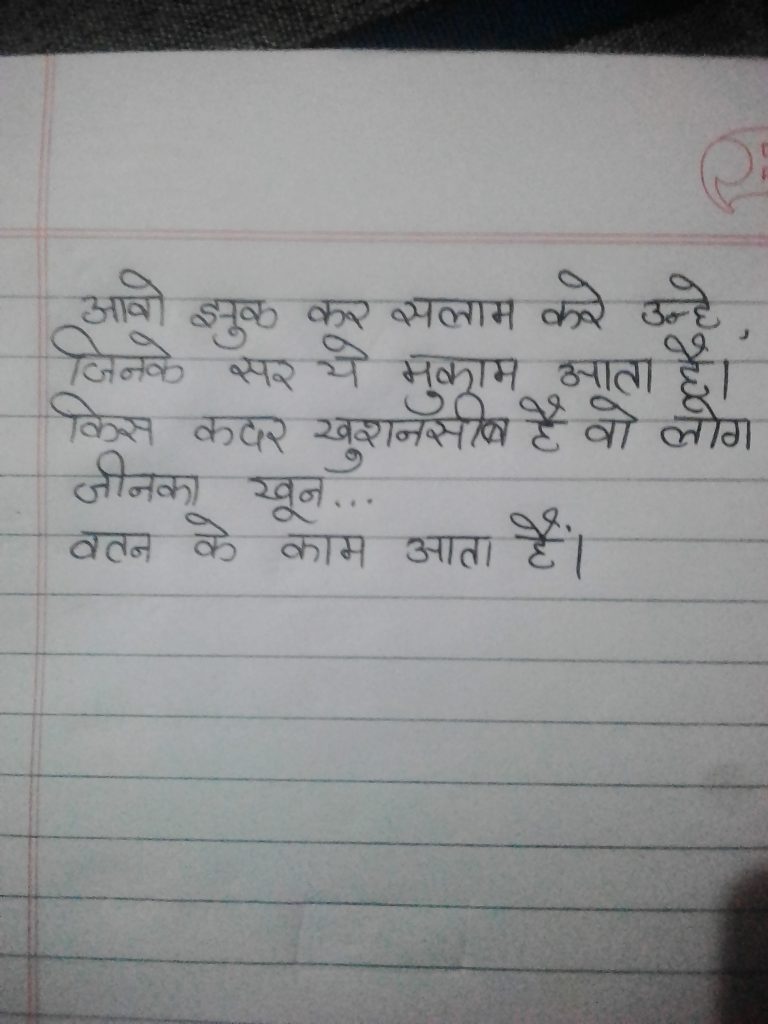 आवो झुक कर सलाम करे उन्हे,
जिनके सर ये मुकाम आता है।
किस कदर खुशनसीब है वो लोग
जीनका खून...
वतन के काम आता हैं।